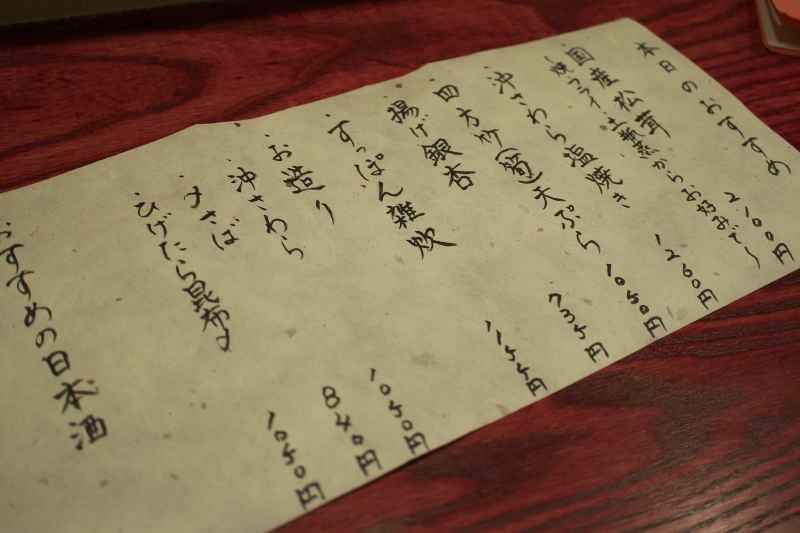 本日のおすすめ
国産松茸
焼 フライ 土瓶蒸からお好みで 2100円
沖さわら塩焼き 1260円
四方竹(筍)天ぷら 1050円
揚げ銀杏 735円
すっぽん雑炊 1155円
お造り
沖さわら 1050円
めさば 840円
ひげたら昆布〆 1050円
おすすめの日本酒